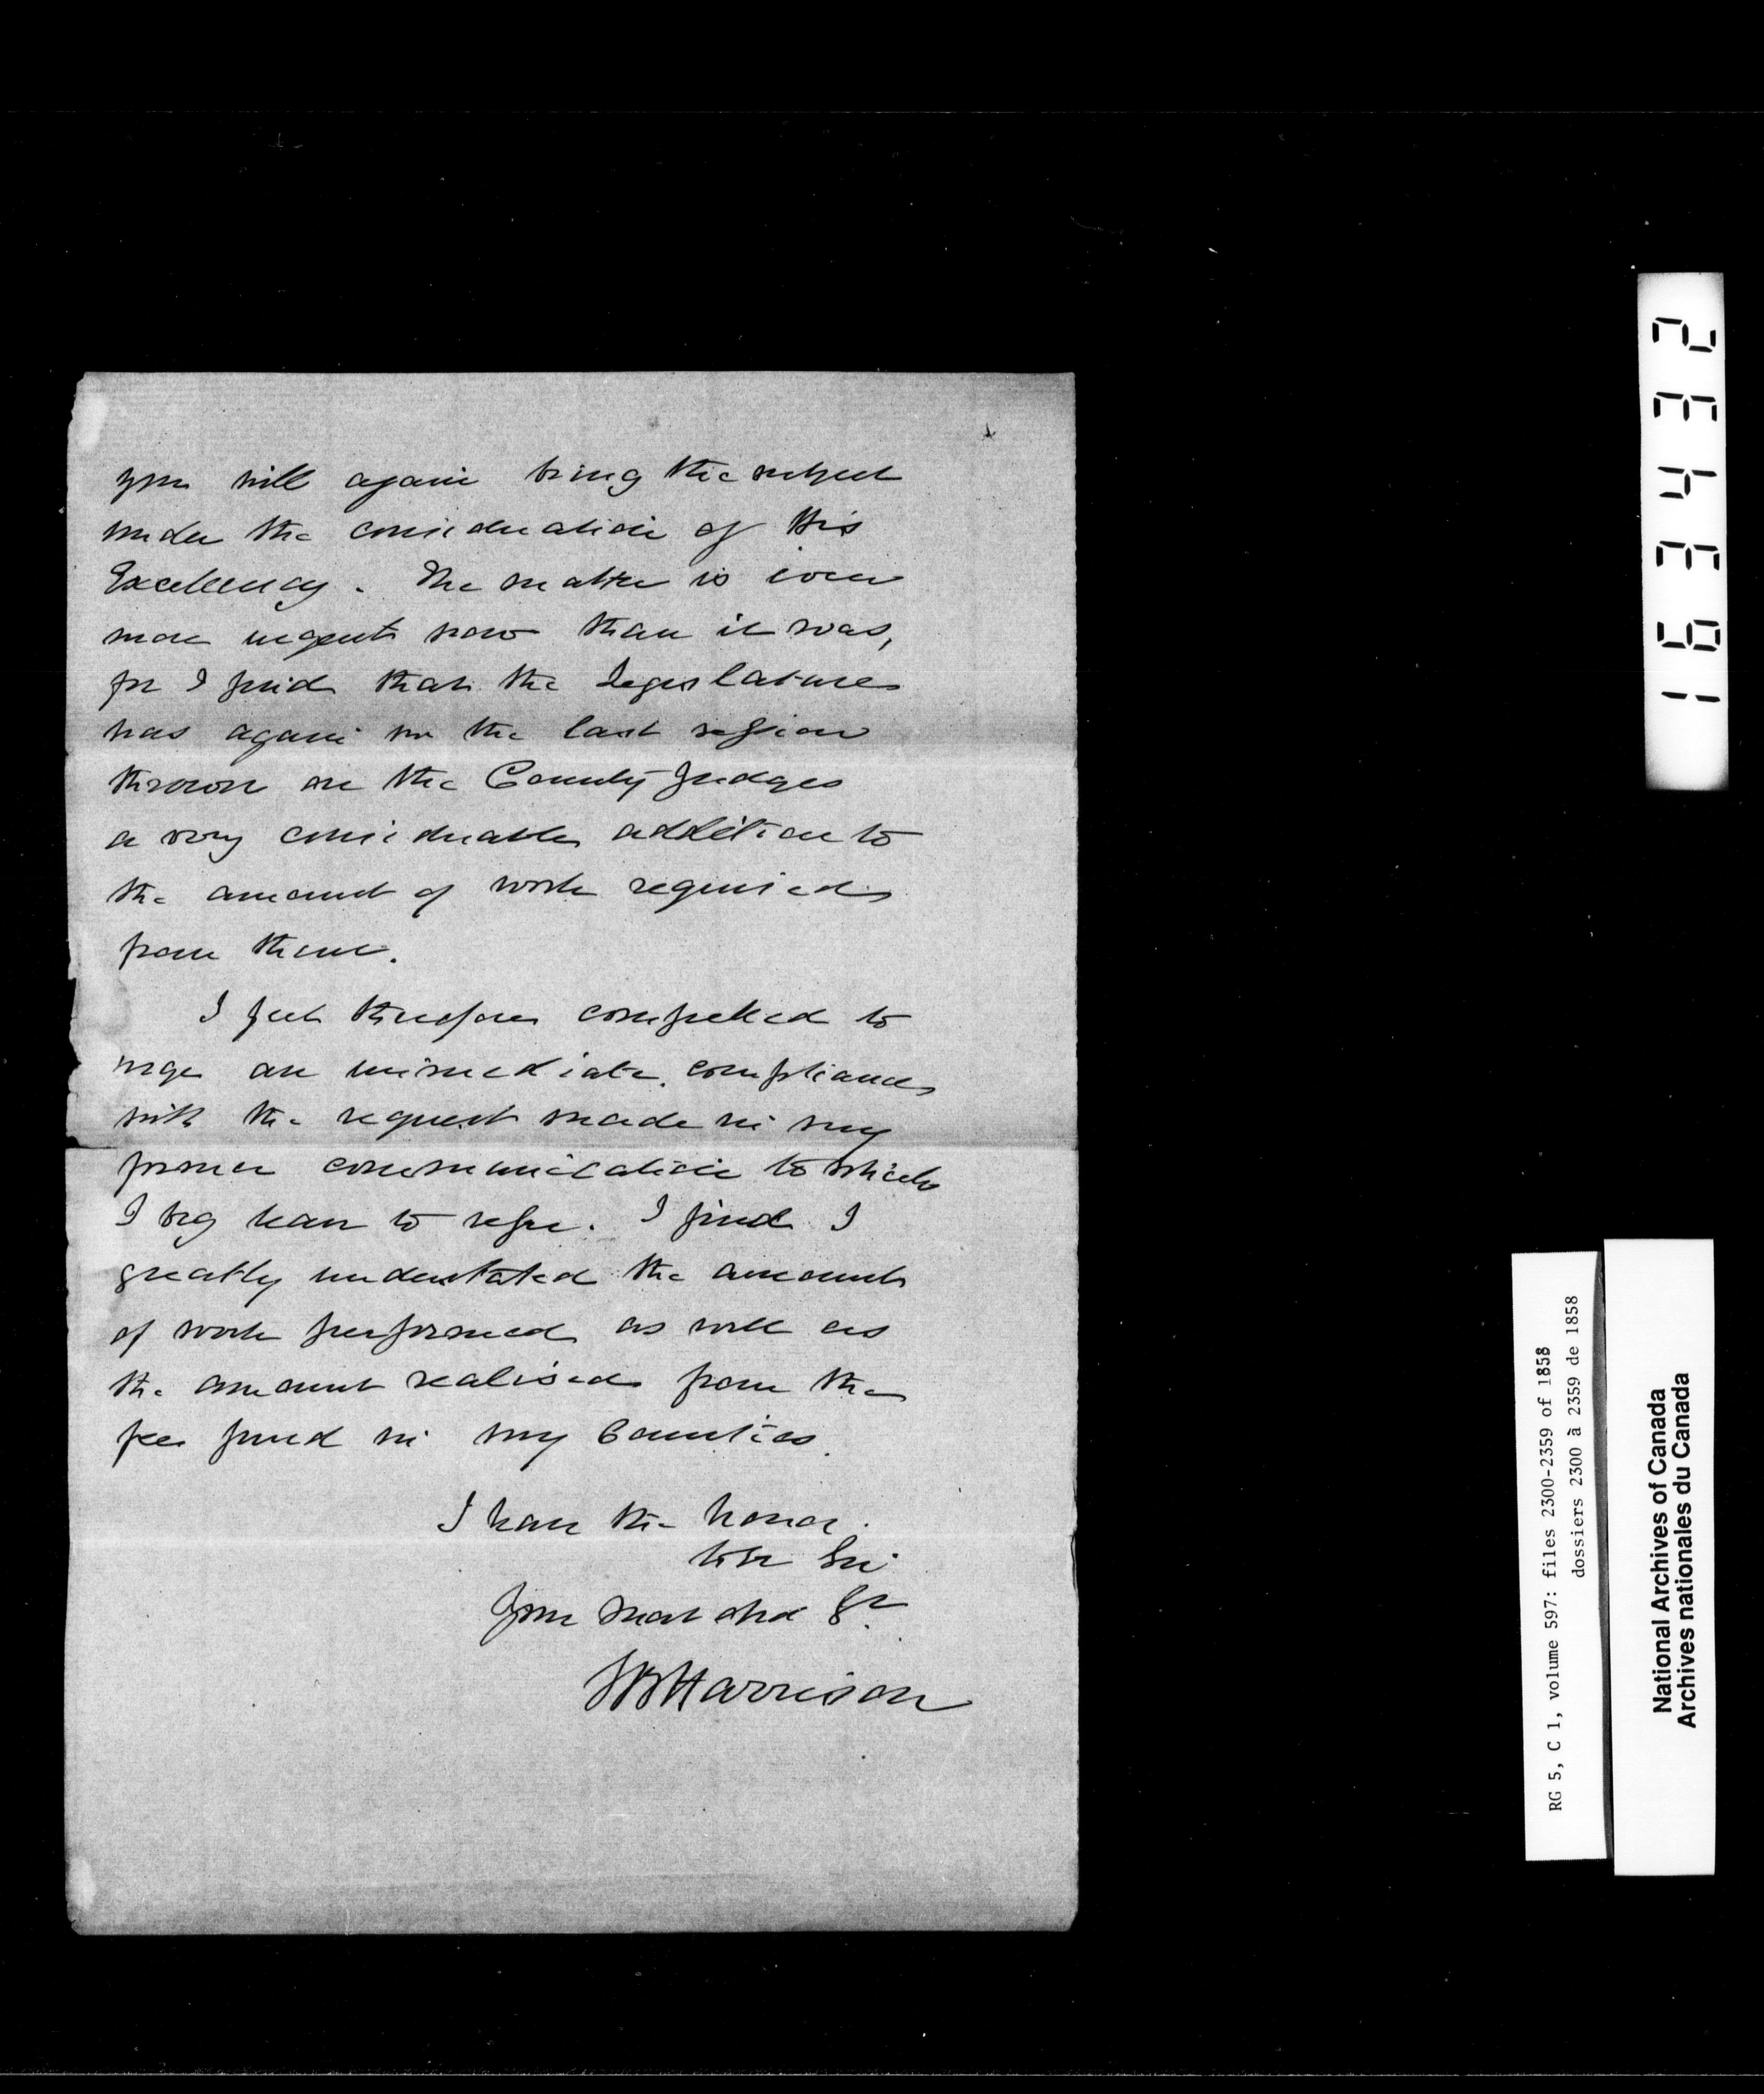 you will again bring the subject
under the consideration of His
Excellency. The matter is even
more urgent now than it was,
for I find that the Legislature
has again in the last session
thrown on the County Judges
a very considerable addition to
the amount of work required
from them.
I feel therefore compelled to
urge an immediate compliance
with the request made in my
former communication to which
I beg leave to refer. I find I
greatly understated the amount
of work performed as well as
the amount realised from the
fee fund in my Counties.
I have the honor
to be Sir
Your most obed St.
SBHarrison
163432
RG 5, C 1, volume 597: files 2300-2359 of 1858
dossiers 2300 à 2359 de 1858
National Archives of Canada
Archives nationales du Canada